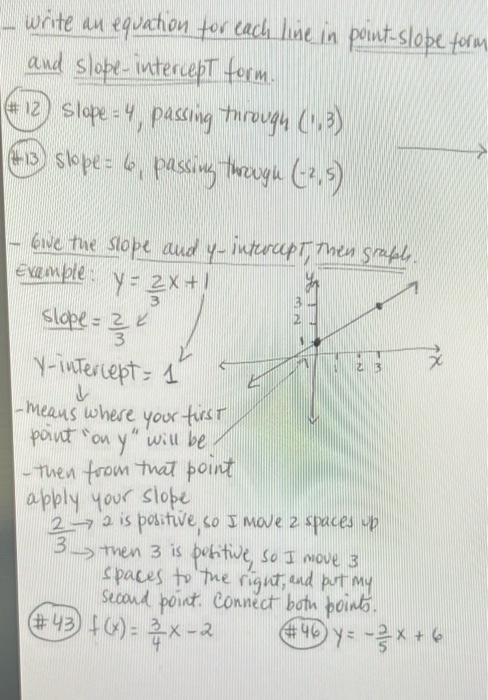 - write an equation for each line in point-slope form
and slope-intercept form.
#12 slope = 4, passing through (1,3)
#13 slope = 6, passing through (-2,5)
- Give the slope and y-intercept, then graph.
Example: y = 2/3 x + 1
slope = 2/3
y-intercept = 1
- means where your first
point "on y" will be
- then from that point
apply your slope
2/3 → 2 is positive, so I move 2 spaces up
→ then 3 is positive, so I move 3
spaces to the right, and put my
second point. Connect both points.
y
3
2
1
1 2 3
x
#43 f(x) = 3/4 x - 2
#46 y = -2/5 x + 6